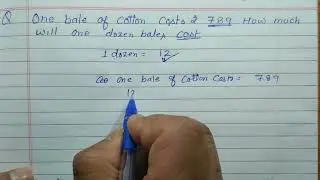 Q One bale of Cotton Costs ₹ 789 How much
will one dozen bales cost
1 dozen = 12
One bale of Cotton Costs = 789
12